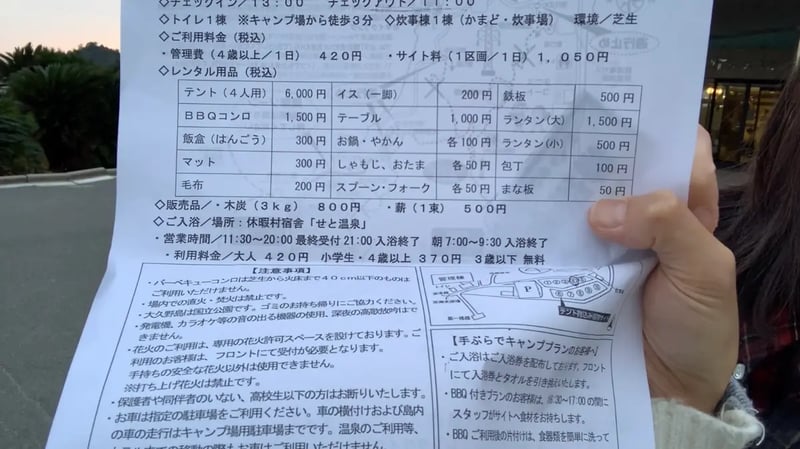 ◇チェックイン／１３：００　チェックアウト／１１：００
◇トイレ１棟　※キャンプ場から徒歩３分　◇炊事棟１棟（かまど・炊事場）　環境／芝生
◇ご利用料金（税込）
・管理費（４歳以上／１日）　４２０円　・サイト料（１区画／１日）１，０５０円
◇レンタル用品（税込）
テント（４人用）　6,000円　イス（一脚）　200円　鉄板　500円
ＢＢＱコンロ　1,500円　テーブル　1,000円　ランタン(大)　1,500円
飯盒（はんごう）　300円　お鍋・やかん　各100円　ランタン(小)　500円
マット　300円　しゃもじ、おたま　各50円　包丁　100円
毛布　200円　スプーン・フォーク　各50円　まな板　50円
◇販売品／・木炭（３ｋｇ）　８００円　・薪（１束）　５００円
◇ご入浴／場所：休暇村宿舎「せと温泉」
・営業時間／11:30～20:00 最終受付 21:00 入浴終了　朝 7:00～9:30 入浴終了
・利用料金／大人　４２０円　小学生・４歳以上　３７０円　３歳以下　無料
【注意事項】
・バーベキューコンロは芝生から火床まで４０ｃｍ以下のものは
ご利用いただけません。
・場内での直火・焚火は禁止です。
・大久野島は国立公園です。ゴミのお持ち帰りにご協力ください。
・発電機、カラオケ等の音の出る機器の使用、深夜の高歌放吟はで
きません。
・花火のご利用は、専用の花火許可スペースを設けております。ご
利用のお客様は、フロントにて受付が必要となります。
手持ちの安全な花火以外は使用できません。
※打ち上げ花火は禁止です。
・保護者や同伴者のいない、高校生以下の方はお断りいたします。
・お車は指定の駐車場をご利用ください。車の横付けおよび島内
の車の走行はキャンプ場用駐車場までです。温泉のご利用等、
管理棟
Ｐ
【手ぶらでキャンププランのお客様へ】
・ご入浴はご入浴券を配布しております。フロント
にて入浴券とタオルを引き換えいたします。
・BBQ 付きプランのお客様は、16:30～17:00 の間に
スタッフがサイトへ食材をお持ちします。
・BBQ ご利用後の片付けは、食器類を簡単に洗って